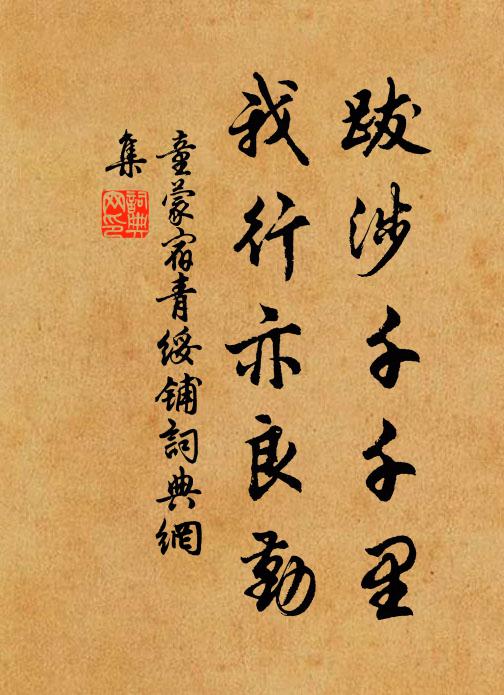 跋涉千千里
我行亦良勤
童蒙宿青綏铺詞典網
集
詞典网印